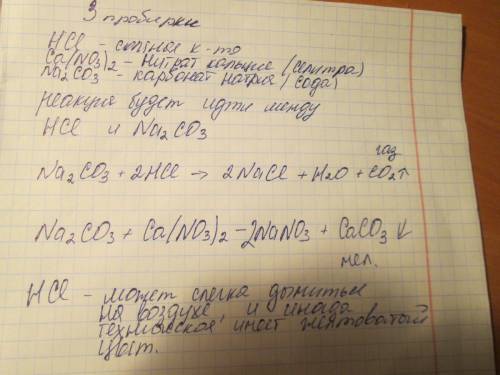 3 пробирки
HCl - соляная к-та
Ca(NO3)2 - нитрат кальция (селитра)
Na2CO3 - карбонат натрия (сода)
реакция будет идти между
HCl и Na2CO3
газ
Na2CO3 + 2HCl → 2NaCl + H2O + CO2↑
Na2CO3 + Ca(NO3)2 - 2NaNO3 + CaCO3↓
мел.
HCl - может слегка дымиться
на воздухе, и иногда
техническая, имеет желтоватый
цвет.